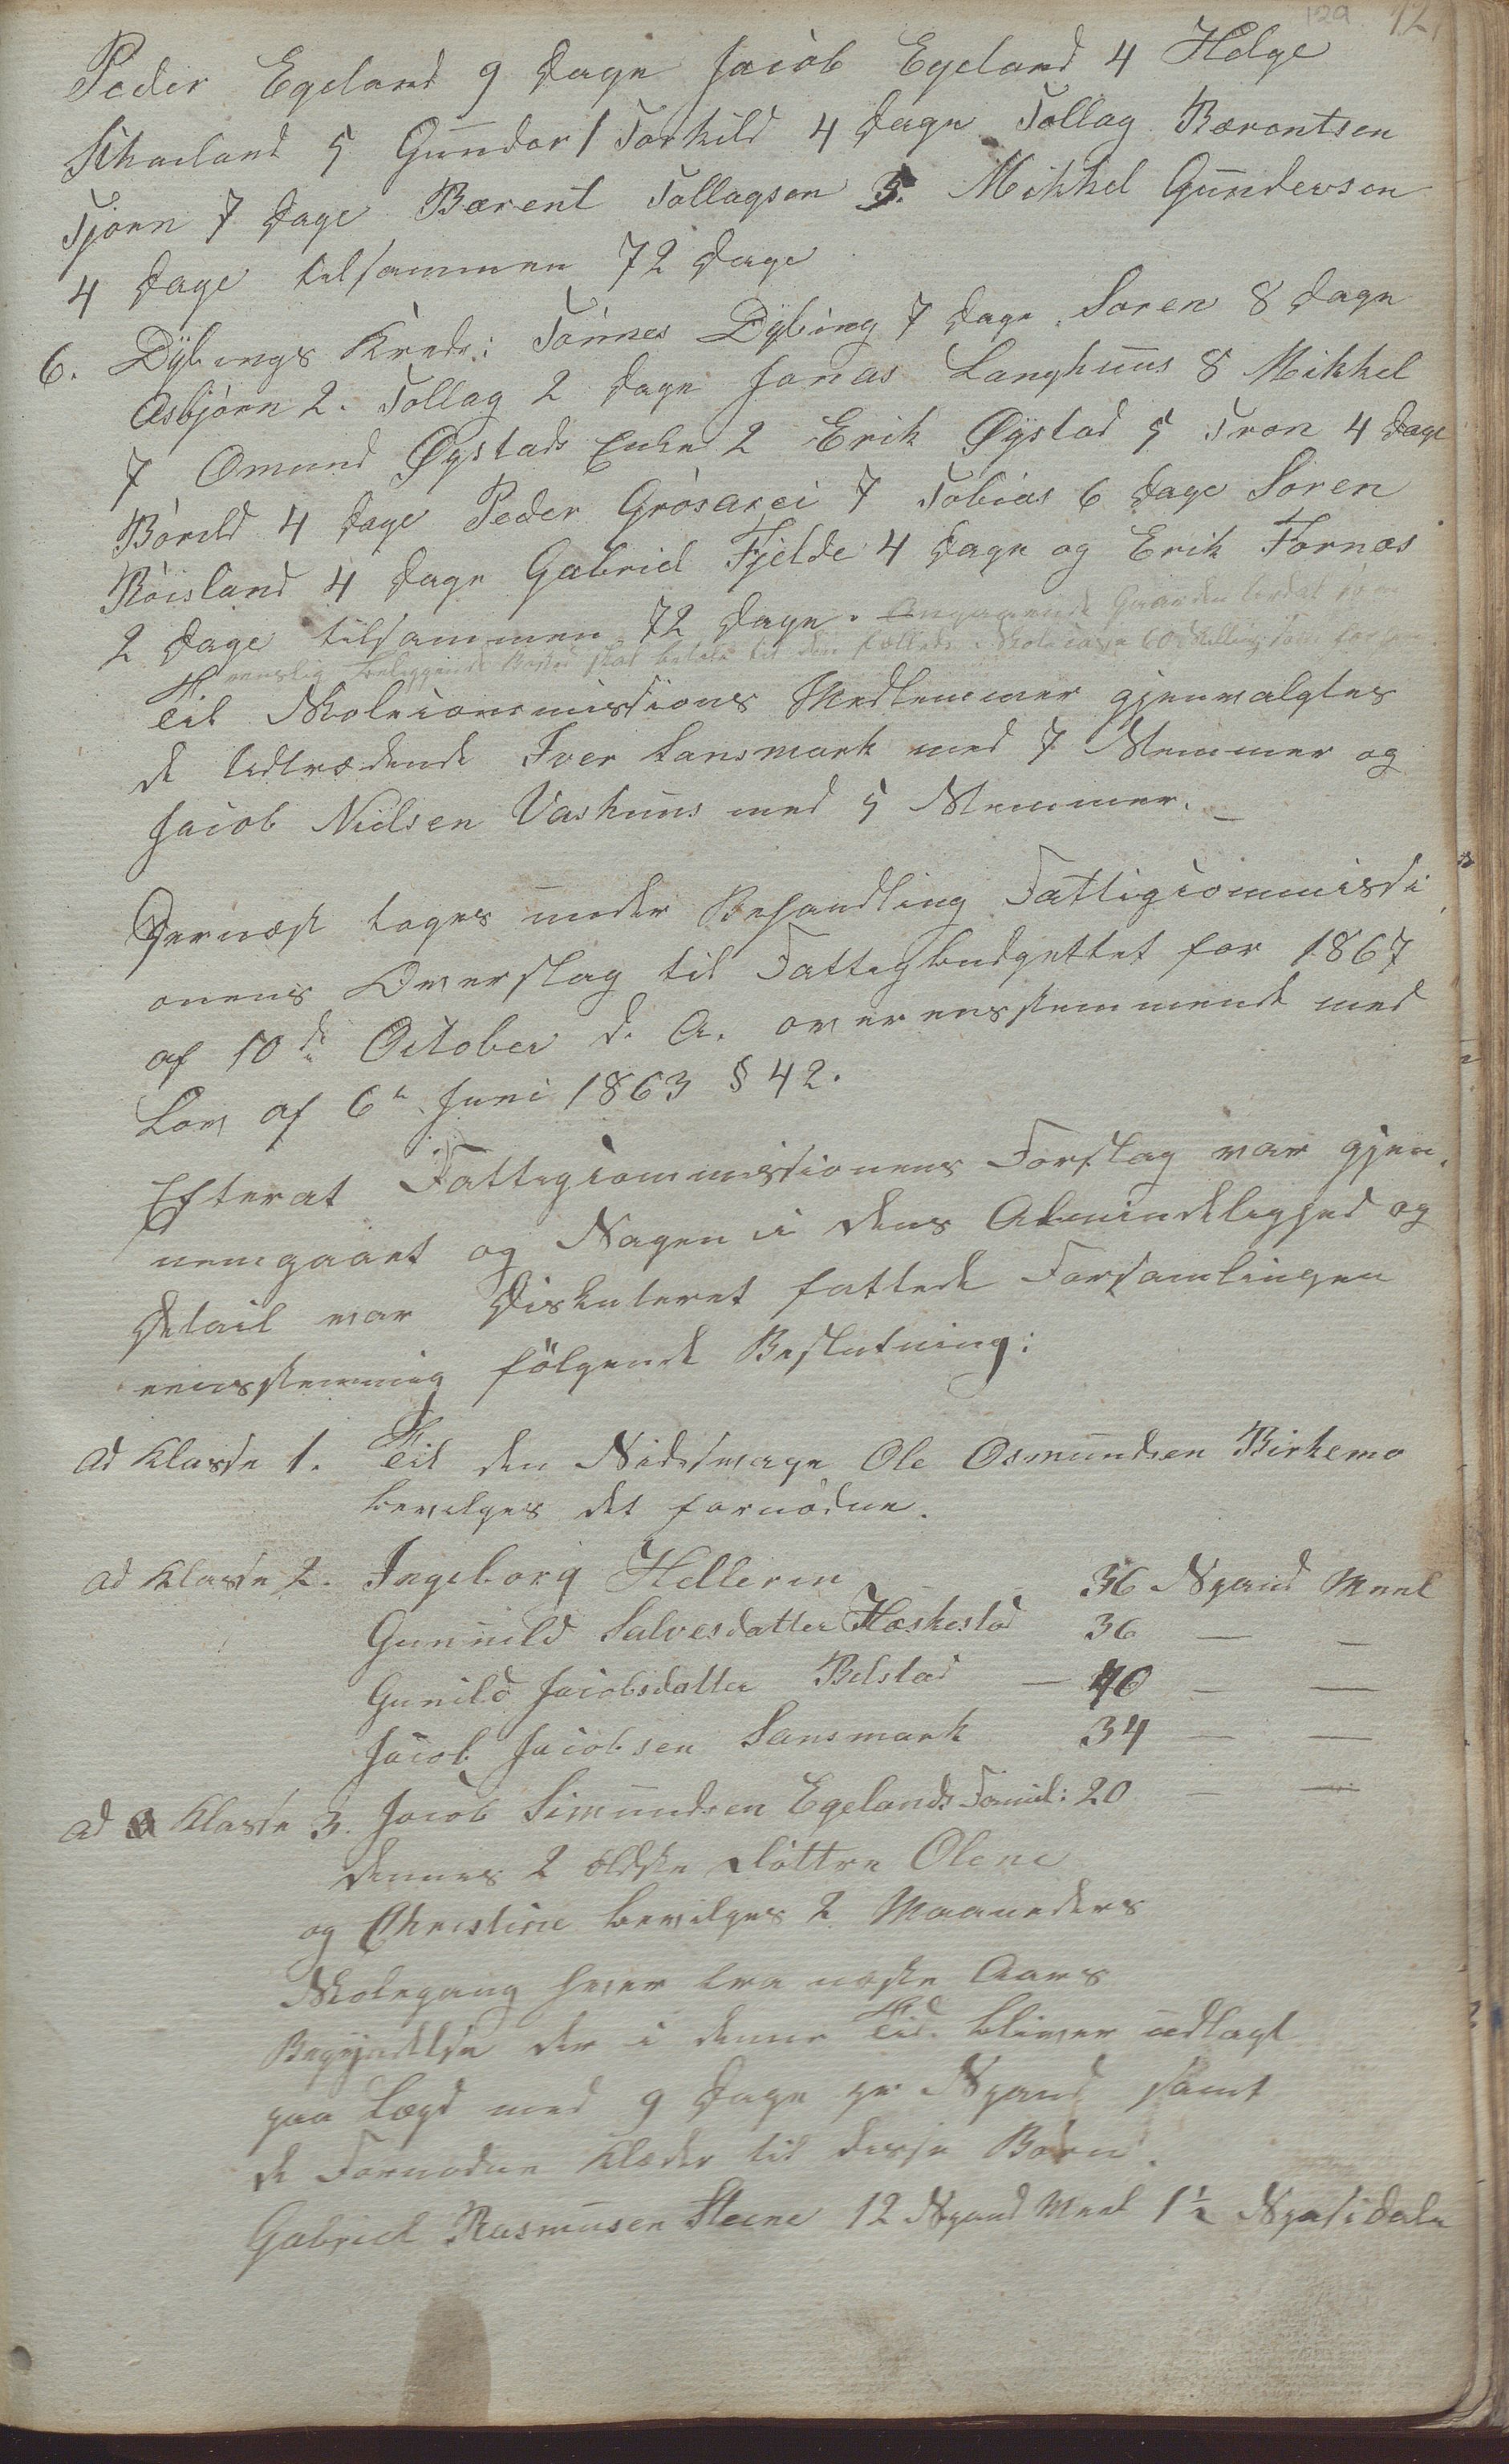 129 12
Peder Egeland 9 Dage Jacob Egeland 4 Helge
Skailand 5 Gundar / Torkild 4 Dage Tollag Bærentsen
Tjørn 7 Dage Bærent Tollagsen 5. Mikkel Gundersen
4 Dage tilsammen 72 Dage
6. Dybings Kreds: Tønnes Dybing 7 Dage, Søren 8 Dage
Asbjørn 2. Tollag 2 Dage Jonas Langhuus 8 Mikkel
7 Omund Øystads Enke 2 Erik Øystad 5 Tron 4 Dage
Bårild 4 Dage Peder Grøsarei 7 Tobias 6 Dage Søren
Røisland 4 Dage Gabriel Fjelde 4 Dage og Erik Fornæs
2 Dage tilsammen 72 Dage. Angaaende
skal betale til den fælleds Skolecasse 60 Skilling
Til Skolecommissions Medlemmer gjenvalgtes
de Udtrædende Iver Sansmark med 7 Stemmer og
Jacob Nielsen Vashuus med 5 Stemmer. –
Dernæst toges under Behandling Fattigcommissi
onens Overslag til Fattigbudgettet for 1867
af 10de October d. A. overensstemmende med
Lov af 6te Juni 1863 § 42.
Efterat Fattigcommissionens Forslag var gjen,
nemgaaet og Sagen i dens Almindelighed og
Detail var Diskuteret fattede Forsamlingen
eensstemmig følgende Beslutning:
ad Klasse 1. Til den Sindssvage Ole Osmundsen Birkemo
bevilges det fornødne.
ad Klasse 2. Ingeborg Helleren 36 Spand Meel
Gunnild Salvesdatter Hæskestad 36 – –
Gunild Jacobsdatter Belstad – 40 – –
Jacob Jacobsen Sansmark 34 – –
ad Klasse 3. Jacob Simundsen Egelands Famil: 20 – –
dennes 2 ældste Døttre Olene
og Christine bevilges 2 Maaneders
Skolegang hver fra næste Aars
Begyndelse der i denne Tid bliver udlagt
paa Lægd med 9 Dage pr Spand samt
de Fornødne Klæder til disse Børn.
Gabriel Rasmusen Steene 12 Spand Meel 1½ Speciedaler